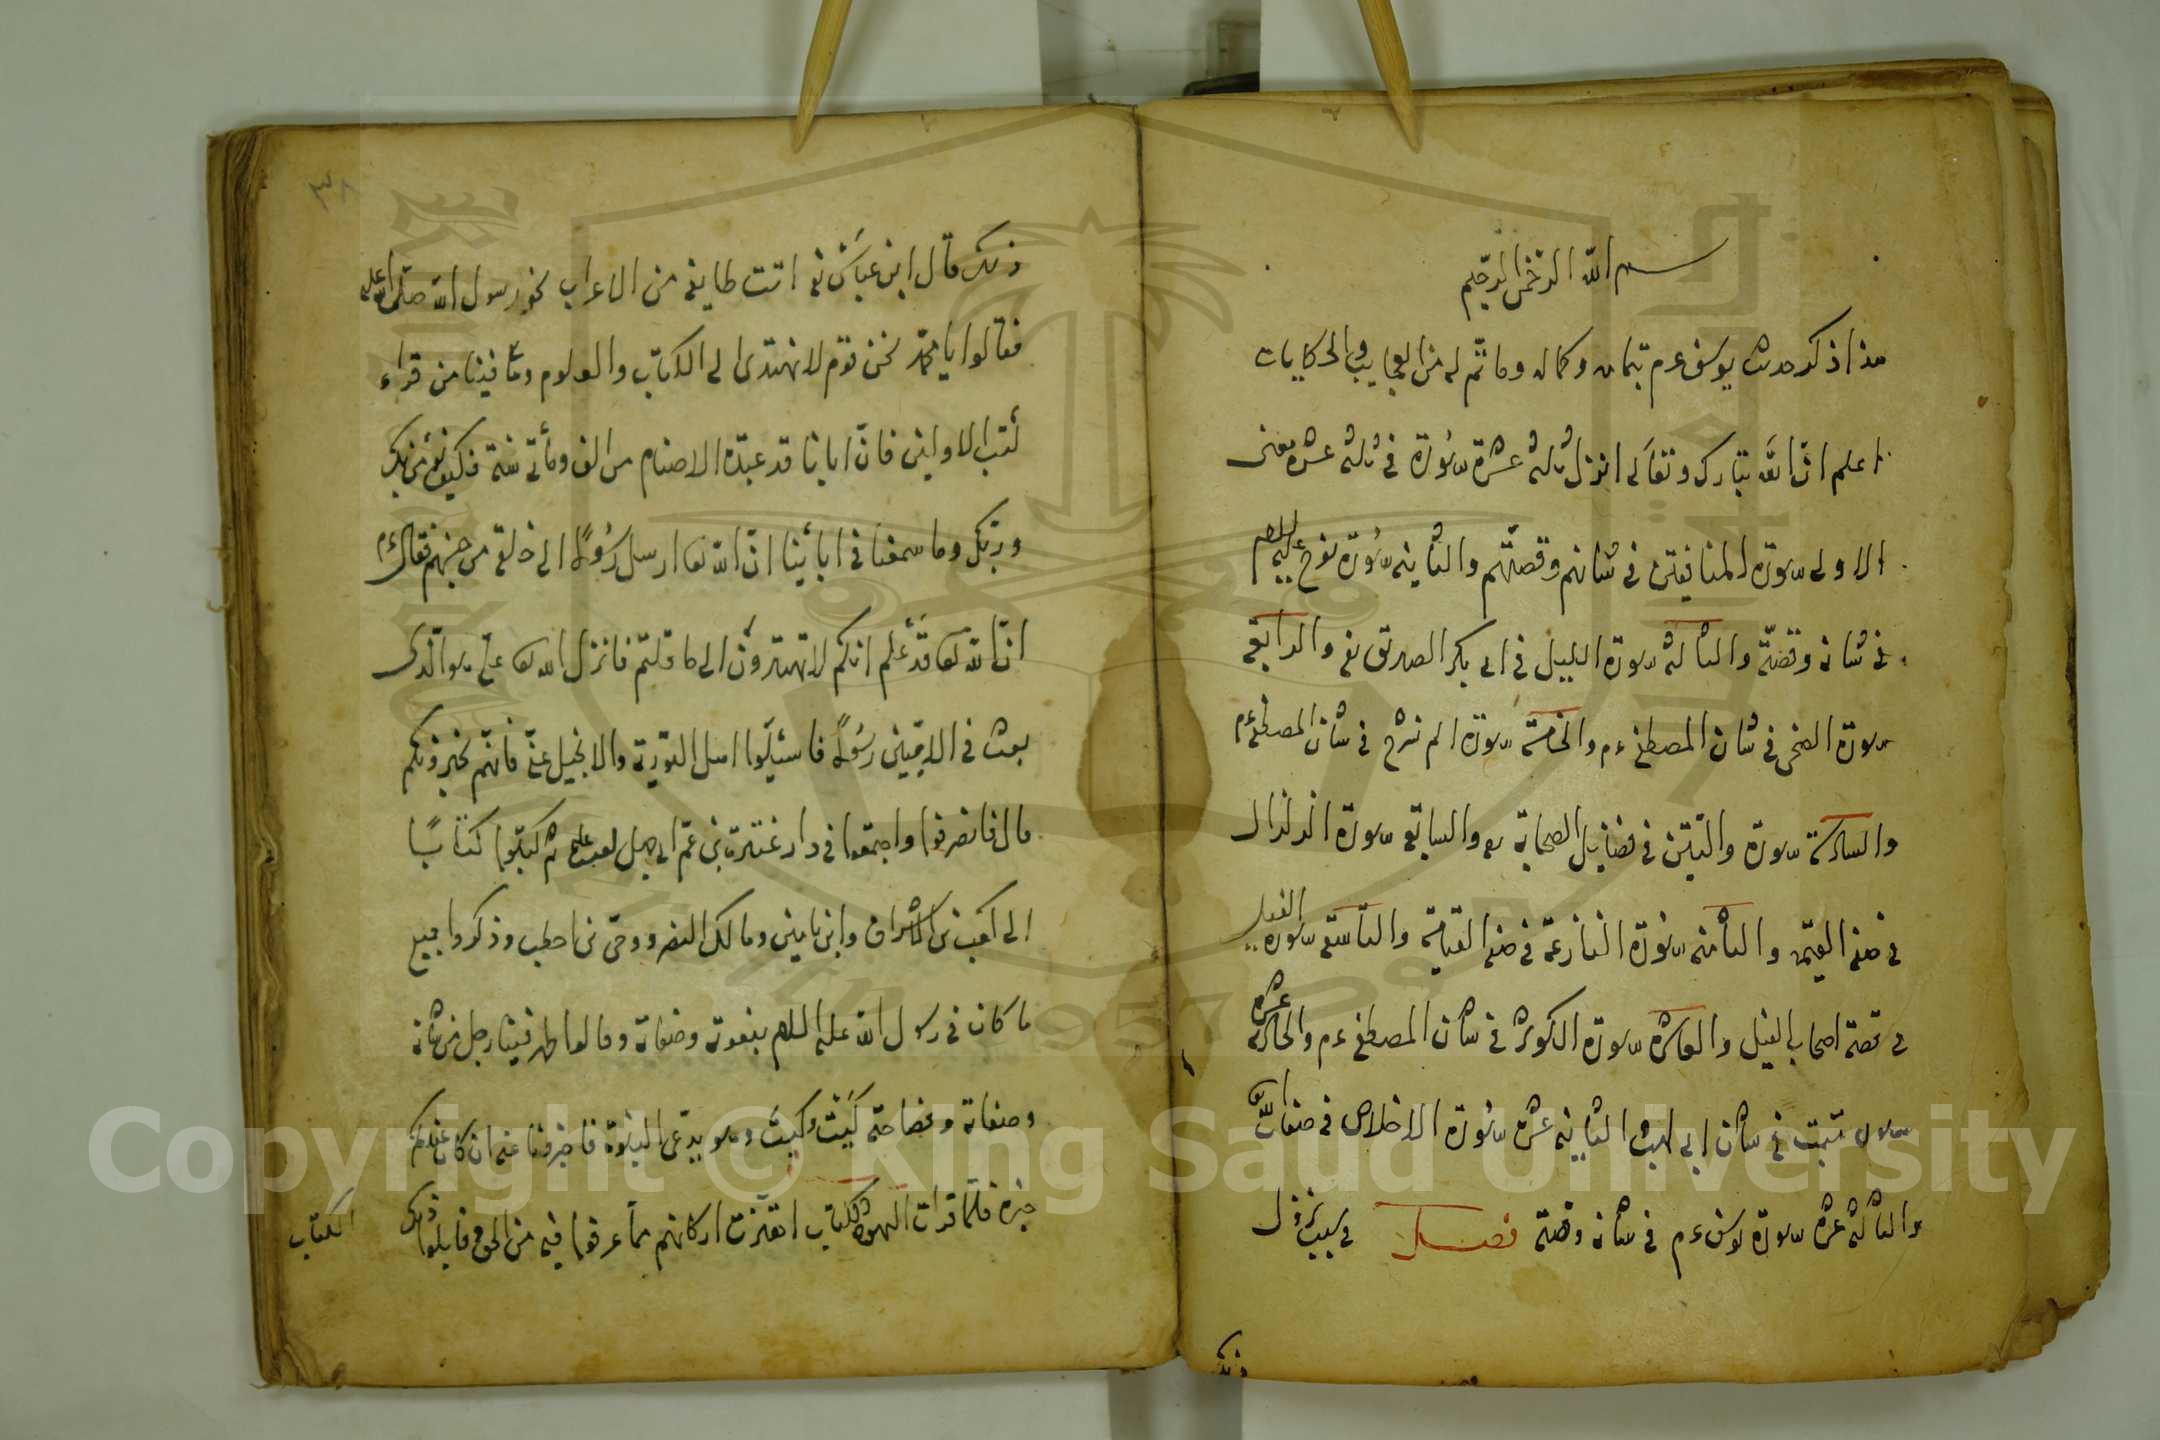 بسم الله الرحمن الرحيم
هذا ذكر حديث يوسف عم بتمامه وكماله وما تم له من العجايب والحكايات
اعلم ان الله تبارك وتعالى انزل ثالثة عشرة سورة في ثالثة عشرة معنى
الاولى سورة المنافقين في شانهم وقصتهم والثانية سورة نوح عليه السلام
في شانه وقصته والثالثة سورة الليل في ابي بكر الصديق رض والرابعة
سورة الضحى في شان المصطفى عم والخامسة سورة الم نشرح في شان المصطفى عم
والسادسة سورة والتين في فضايل الصحابة رض والسابعة سورة الزلزال
في صفة القيمة والثامنة سورة النازعة في صفة القيامة والتاسعة سورة الفيل
في قصة اصحاب الفيل والعاشرة سورة الكوثر في شان المصطفى عم والحادية عشرة
سورة تبت في شان ابي لهب والثانية عشرة سورة الاخلاص في صفات الله
والثالثة عشرة سورة يوسف عم في شانه وقصته فصل في سبب نزول
ذلك
ذلك قال ابن عباس رض اتت طايفة من الاعراب نحو رسول الله صلى الله عليه
فقالوا يا محمد نحن قوم لا نهتدى الى الكتاب والعلوم وما فينا من قراء
كتب الاولين فان ابانا قد عبدة الاصنام من الف ومأتي سنة فكيف نؤمن بك
وبربك وما سمعنا في ابائنا ان الله تعا ارسل رسولا الى خلق من جنسهم فقال عم
ان الله تعا قد علم انكم لا تهتدون الى ما قلتم فانزل الله تعا على هو الذى
بعث في الاميين رسولا فاسئلوا اهل التورية والانجيل عني فانهم يخبرونكم
قال فانصرفوا واجتمعوا في دار عم ابي جهل لعنة عليه ثم كتبوا كتابا
الى كعب بن الاشراف وابن يامين ومالك النضر وحي بن اخطب وذكروا جميع
ما كان في رسول الله عليه السلام بنعوته وصفاته وقالوا ظهر فينا رجل من شانه
وصفاته وفصاحته كيت وكيت وهو يدعى النبوة فاخبرونا عنه ان كان عندكم
خبره فلما قرات اليهود الكتاب اهتزت اركانهم مما عرفوا فيه من الحق فابلوا ذلك
الكتاب